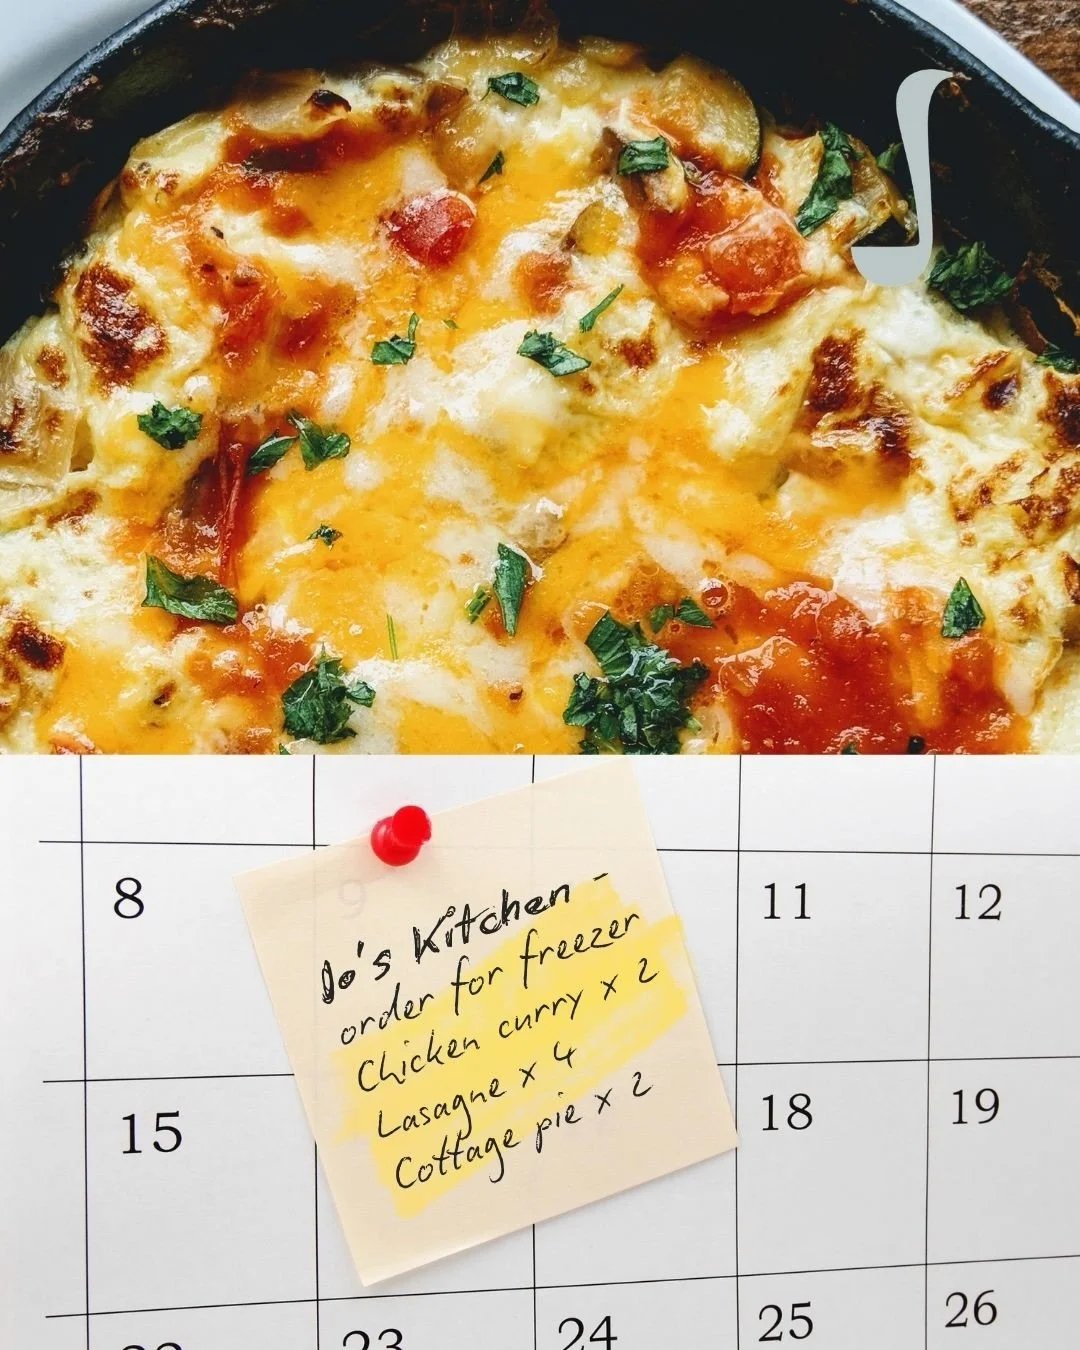 8
9
11
12
Jo's Kitchen -
order for freezer
Chicken curry x 2
Lasagne x 4
Cottage pie x 2
15
18
19
23
24
25
26